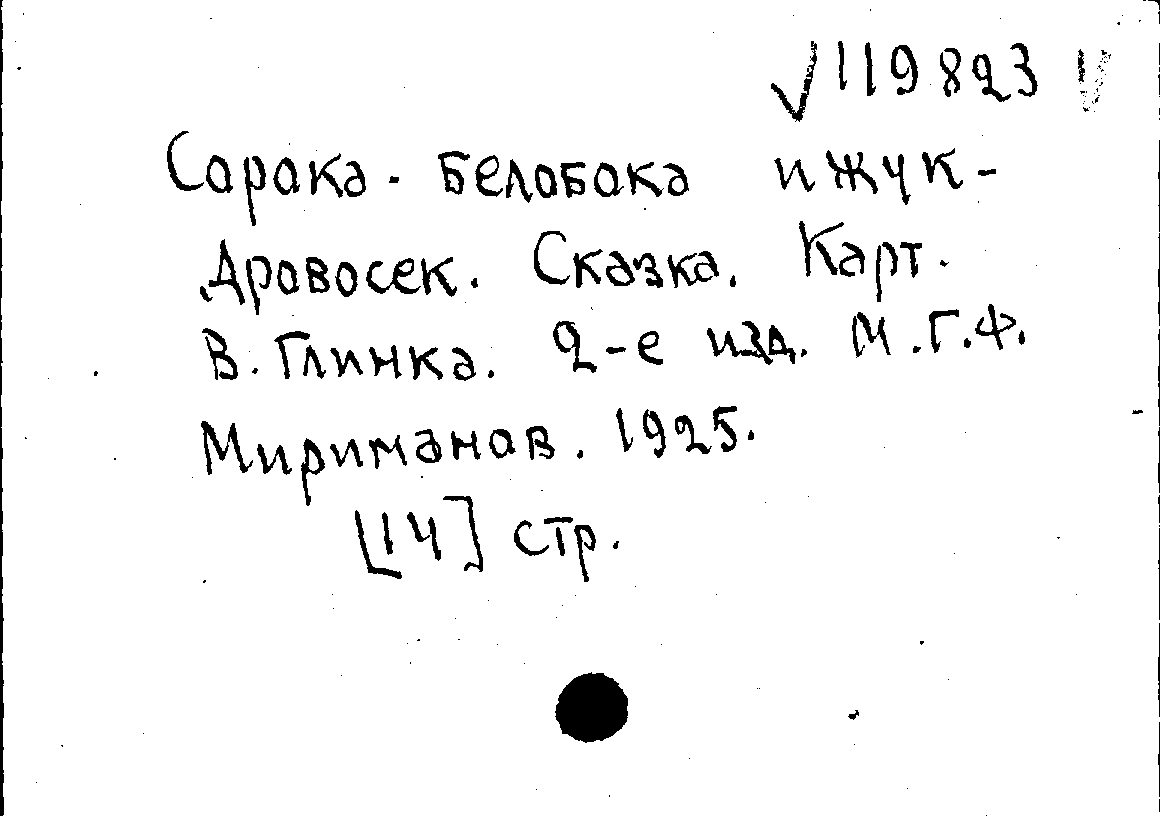 √119823 V
Сорока-белобока и жук-
Дровосек. Сказка. Карт.
В. Глинка. 2-е изд. М. Г.Ф.
Мириманов. 1925.
[14] стр.